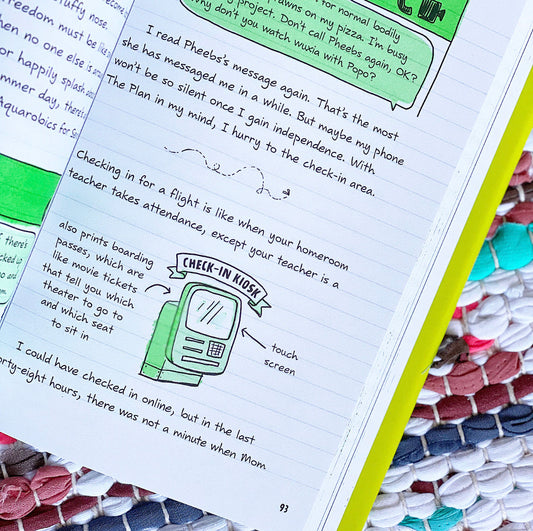 fluffy nose.
freedom must be like
hen no one else is
or happily splash
mmer day, there's
Aquarobics for
for normal bodily
prawns on my pizza. I'm busy
project. Don't call Pheebs again, OK?
Why don't you watch wuxia with Popo?
I read Pheebs's message again. That's the most
she has messaged me in a while. But maybe my phone
won't be so silent once I gain independence. With
The Plan in my mind, I hurry to the check-in area.
Checking in for a flight is like when your homeroom
teacher takes attendance, except your teacher is a
also prints boarding
passes, which are
like movie tickets
that tell you which
theater to go to
and which seat
to sit in
CHECK-IN KIOSK
touch
screen
I could have checked in online, but in the last
forty-eight hours, there was not a minute when Mom
93